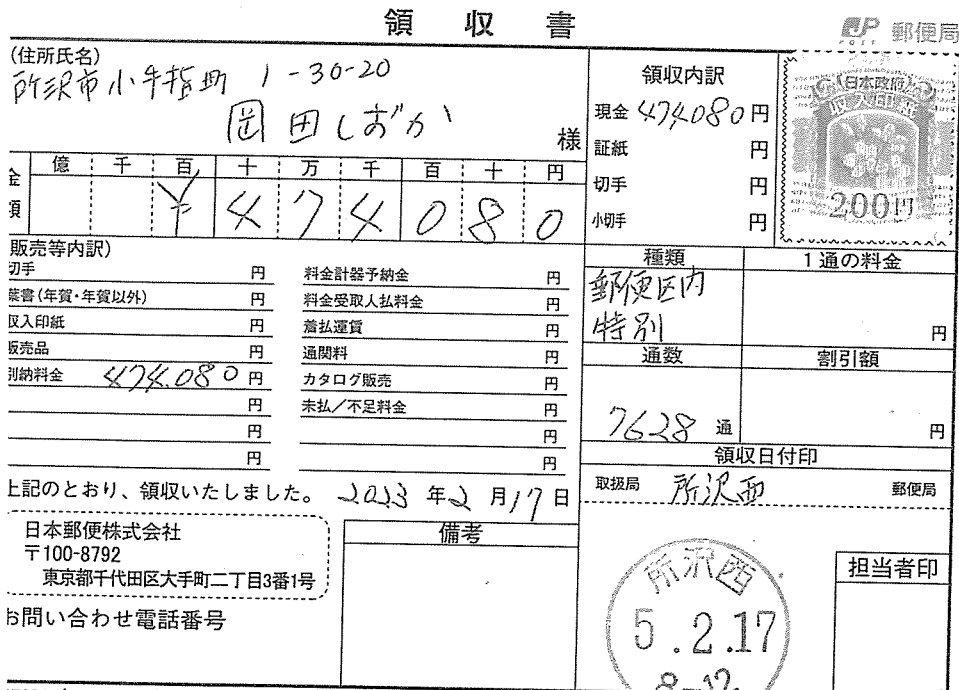 領 収 書
JP POST 郵便局
(住所氏名)
所沢市小手指町 1-30-20
岡田しずか 様
金額 億 千 百 十 万 千 百 十 円
¥ 4 7 4 0 8 0
領収内訳
現金 474080 円
証紙 円
切手 円
小切手 円
日本政府
収入印紙
200円
販売等内訳)
切手 円
葉書(年賀・年賀以外) 円
収入印紙 円
販売品 円
別納料金 474,080 円
円
円
円
料金計器予納金 円
料金受取人払料金 円
着払運賃 円
通関料 円
カタログ販売 円
未払/不足料金 円
円
円
種類
郵便区内
特別
1通の料金
円
通数
7628 通
割引額
円
上記のとおり、領収いたしました。 2023 年 2 月 17 日
領収日付印
取扱局 所沢西 郵便局
日本郵便株式会社
〒100-8792
東京都千代田区大手町二丁目3番1号
お問い合わせ電話番号
備考
所沢西
5.2.17
8-12
担当者印